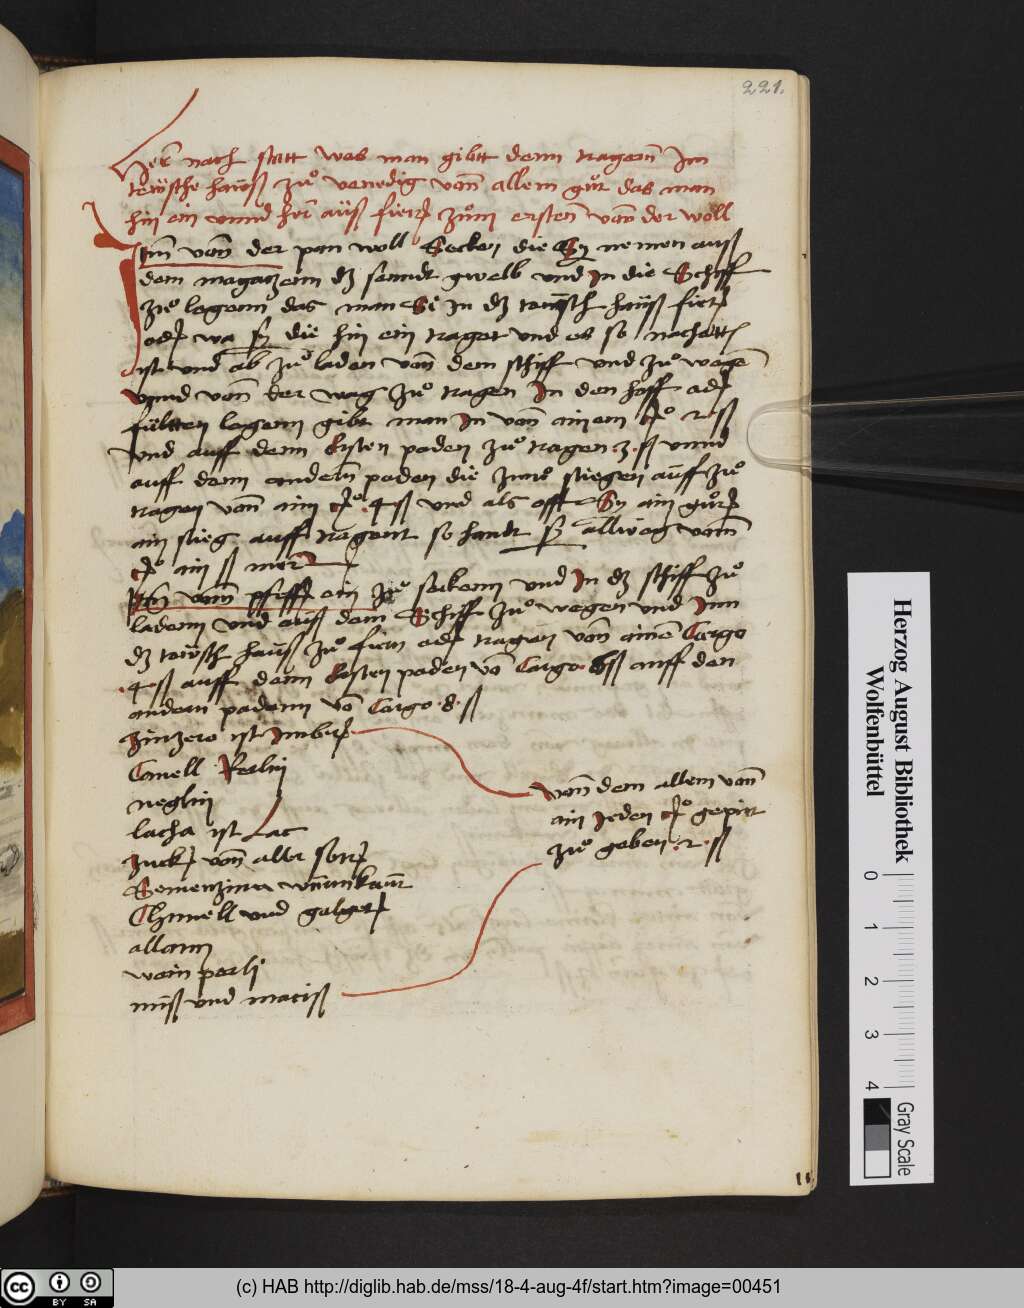 221.
Her nach statt was man gibtt denn tragern Im
teüsche haüß zuͦ venedig vonn allem guͦt das man
hin ein vnnd her auß fiert zuͦm ersten von der woll
Itm vonn der pan woll Secken die Sy nemen auß
dem magatzenn dz sanndt gwelb vnd In die Schiff
zuͦ legenn das man Si In dz teutsch hauß fiert
oder wa sy die hin ein traget vnd es so nachett
ist vnd ab zuͦ laden von dem schiff vnd zuͦ wegen
vnnd vonn der wag zuͦ tragen In den hoff oder
legenn gibt man In von ainem 2 ß
vnd auff denn Ersten poden zuͦ tragen 3 ß vnnd
auff denn andern poden die zwuͦ stiegen auff zuͦ
tragen vonn aim 4 ß vnd als offt Sy ain guͦt
ain stieg auff tragent so handt sy allweg vonn
ain ß mer
Itm vonn pfeffer ein zuͦ seckenn vnd In dz schiff zuͦ
ladenn vnd auß dem Schiff zuͦ wegen vnd Inn
dz teutsch hauß zuͦ fiern oder tragen von ainem Cargo
4 ß auff denn Ersten poden von Cargo 6 ß auff den
andern podenn von Cargo 8 ß
zinzero ist Imber
Canell Rerlin
neglin
lacha ist Lac
zucker vonn aller sorten
Semenzina
vnd galgett
allann
wein perli
muß vnd maciß
vonn dem allem vonn
ain Jeden gepirt
zuͦ geben 2 ß
Herzog August Bibliothek
Wolfenbüttel
0 1 2 3 4
Gray Scale
cc BY SA
(c) HAB http://diglib.hab.de/mss/18-4-aug-4f/start.htm?image=00451